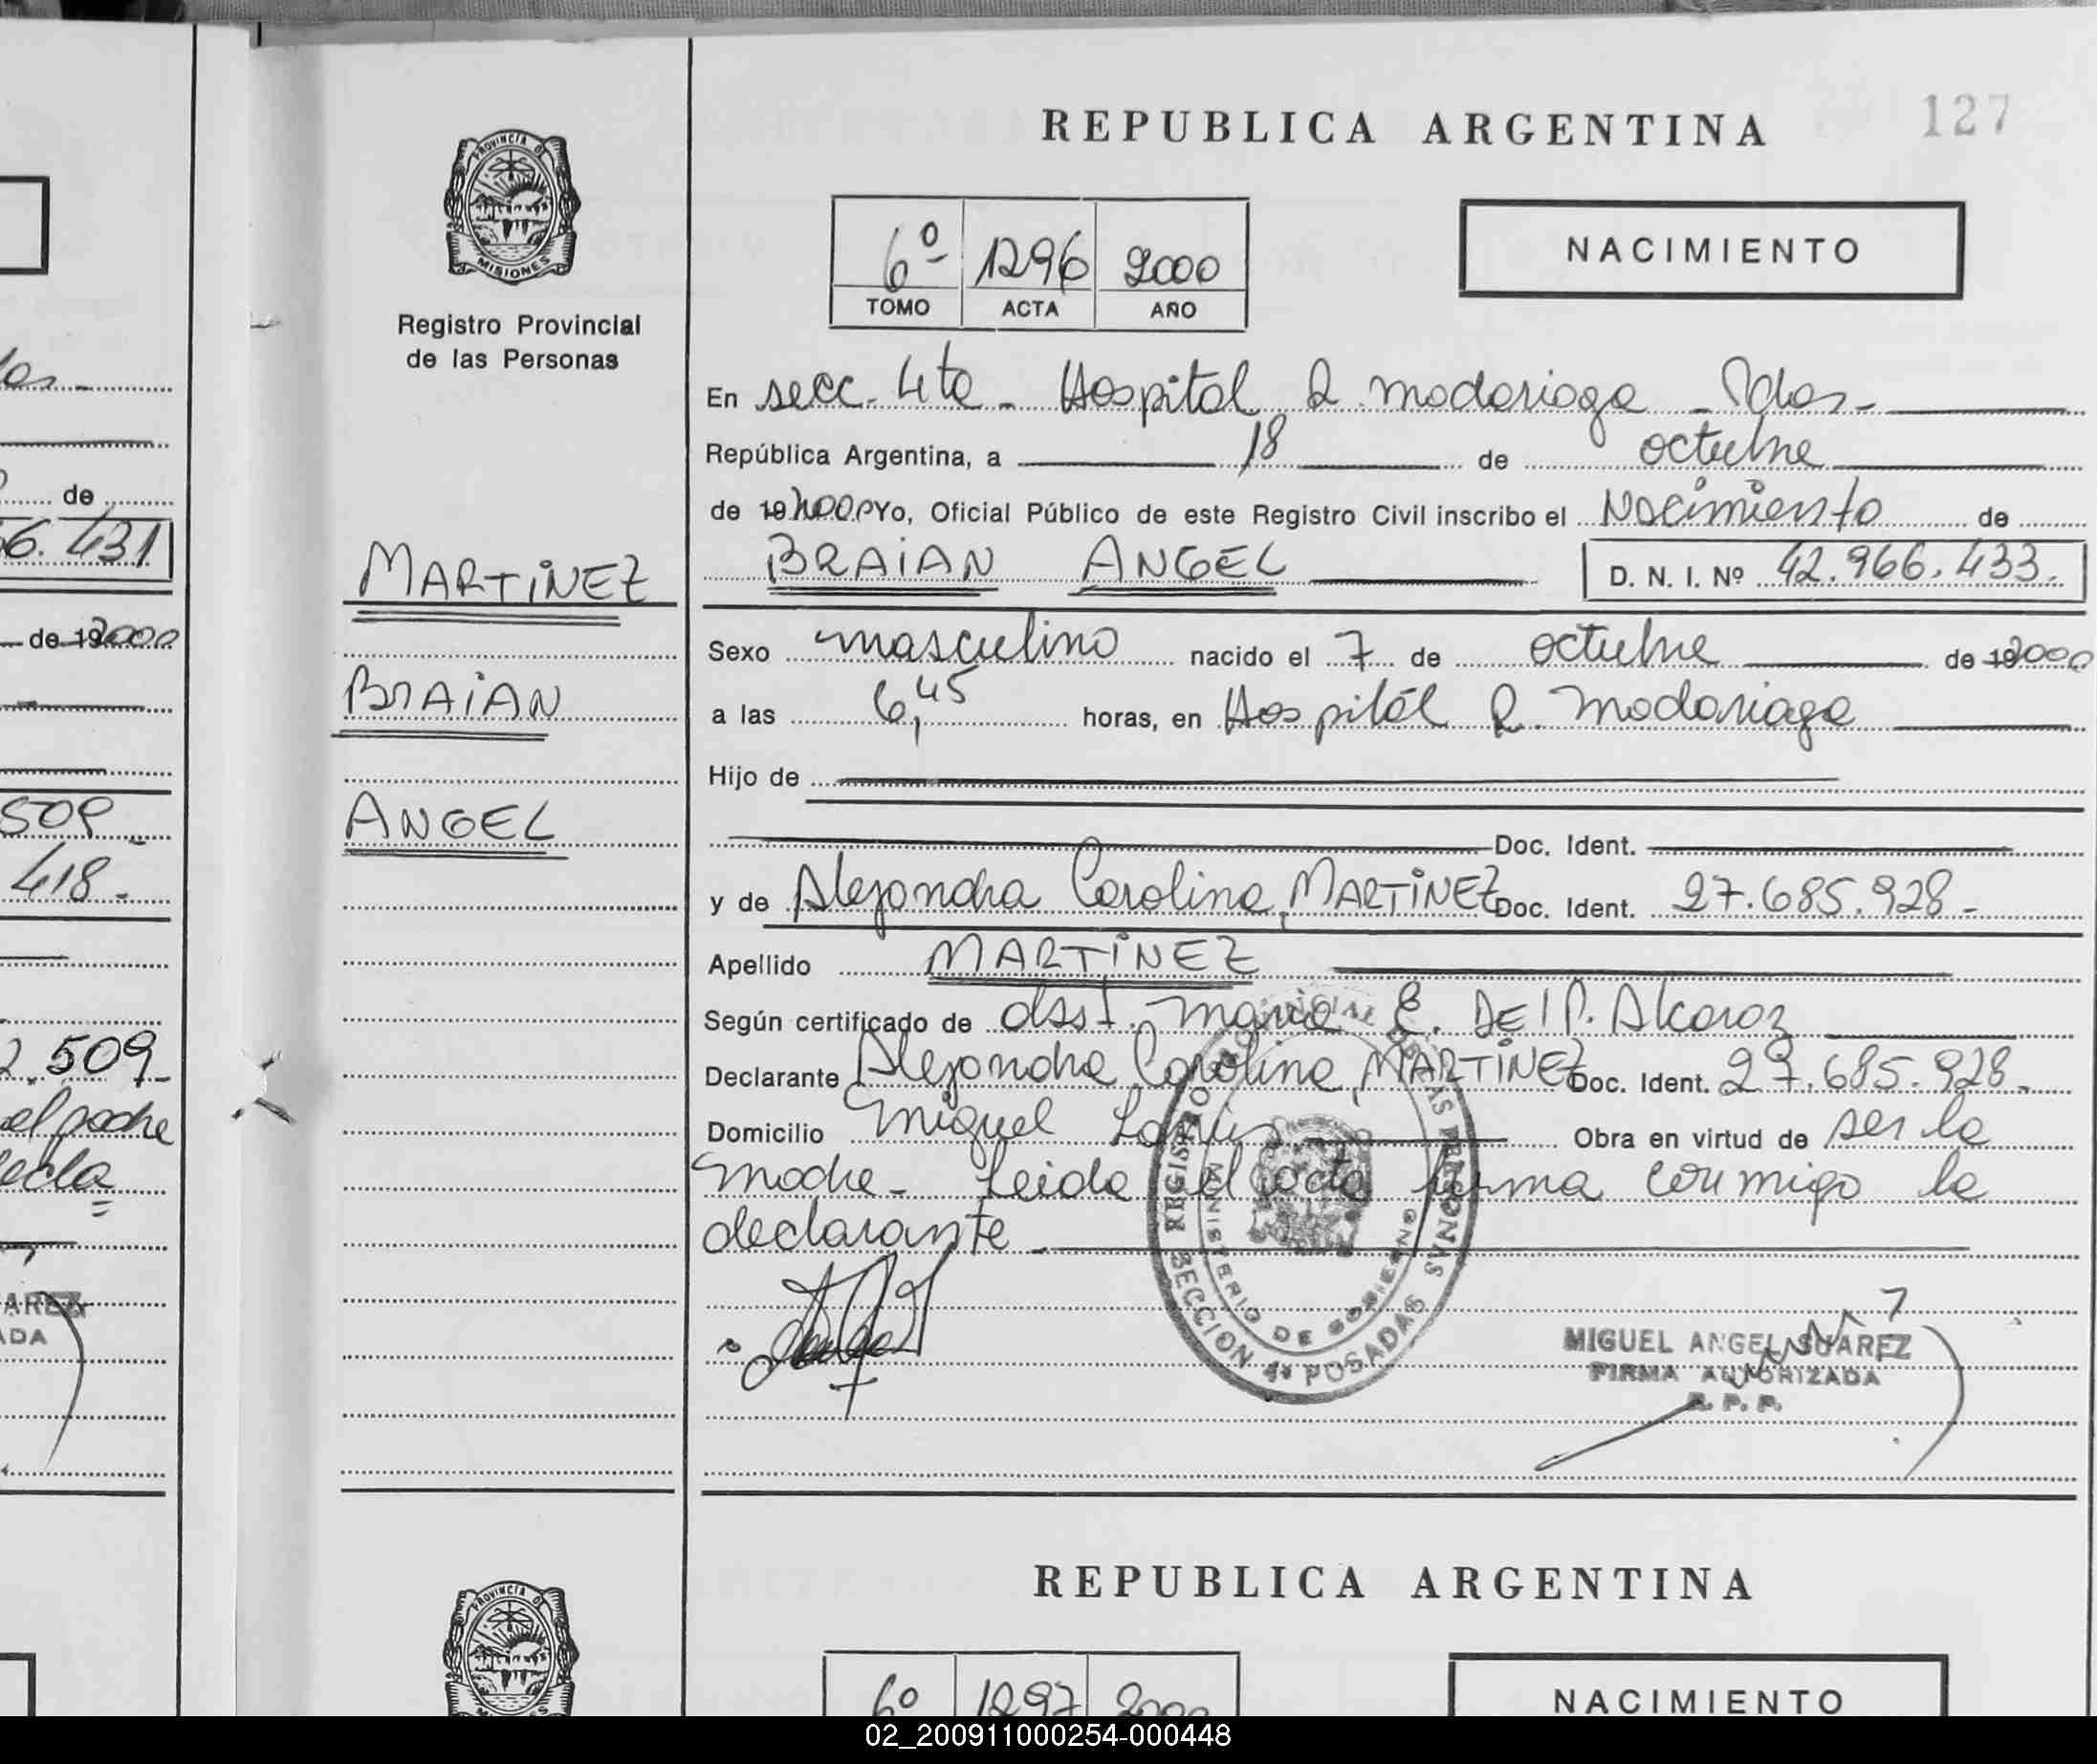 REPUBLICA ARGENTINA
127
PROVINCIA DE
MISIONES
Registro Provincial
de las Personas
6º 1296 2000
TOMO ACTA AÑO
NACIMIENTO
En secc. 4ta - Hospital R. Madariaga - Pdas -
República Argentina, a 18 de octubre
de 192000 Yo, Oficial Público de este Registro Civil inscribo el Nacimiento de
BRAIAN ANGEL D. N. I. Nº 42.966.433.
MARTINEZ
BRAIAN
ANGEL
Sexo masculino nacido el 7 de octubre de 192000
a las 6,45 horas, en Hospital R. Madariaga
Hijo de
Doc. Ident.
y de Alejandra Carolina MARTINEZ Doc. Ident. 27.685.928 -
Apellido MARTINEZ
Según certificado de obst. Maria E. DEL P. Alcaraz
Declarante Alejandra Carolina MARTINEZ Doc. Ident. 27.685.928 -
Domicilio Miguel Lanús Obra en virtud de ser la
madre - Leida el acta firma conmigo la
declarante
REGISTRO PROVINCIAL DE LAS PERSONAS
MINISTERIO DE GOBIERNO
SECCION 4ª POSADAS
MIGUEL ANGEL SUAREZ
FIRMA AUTORIZADA
R. P. P.
los -
de
6.431
de 192000
509
418 -
2.509 -
el padre
AREZ
ADA
REPUBLICA ARGENTINA
PROVINCIA DE
6º 1297 2000
NACIMIENTO
02_200911000254-000448